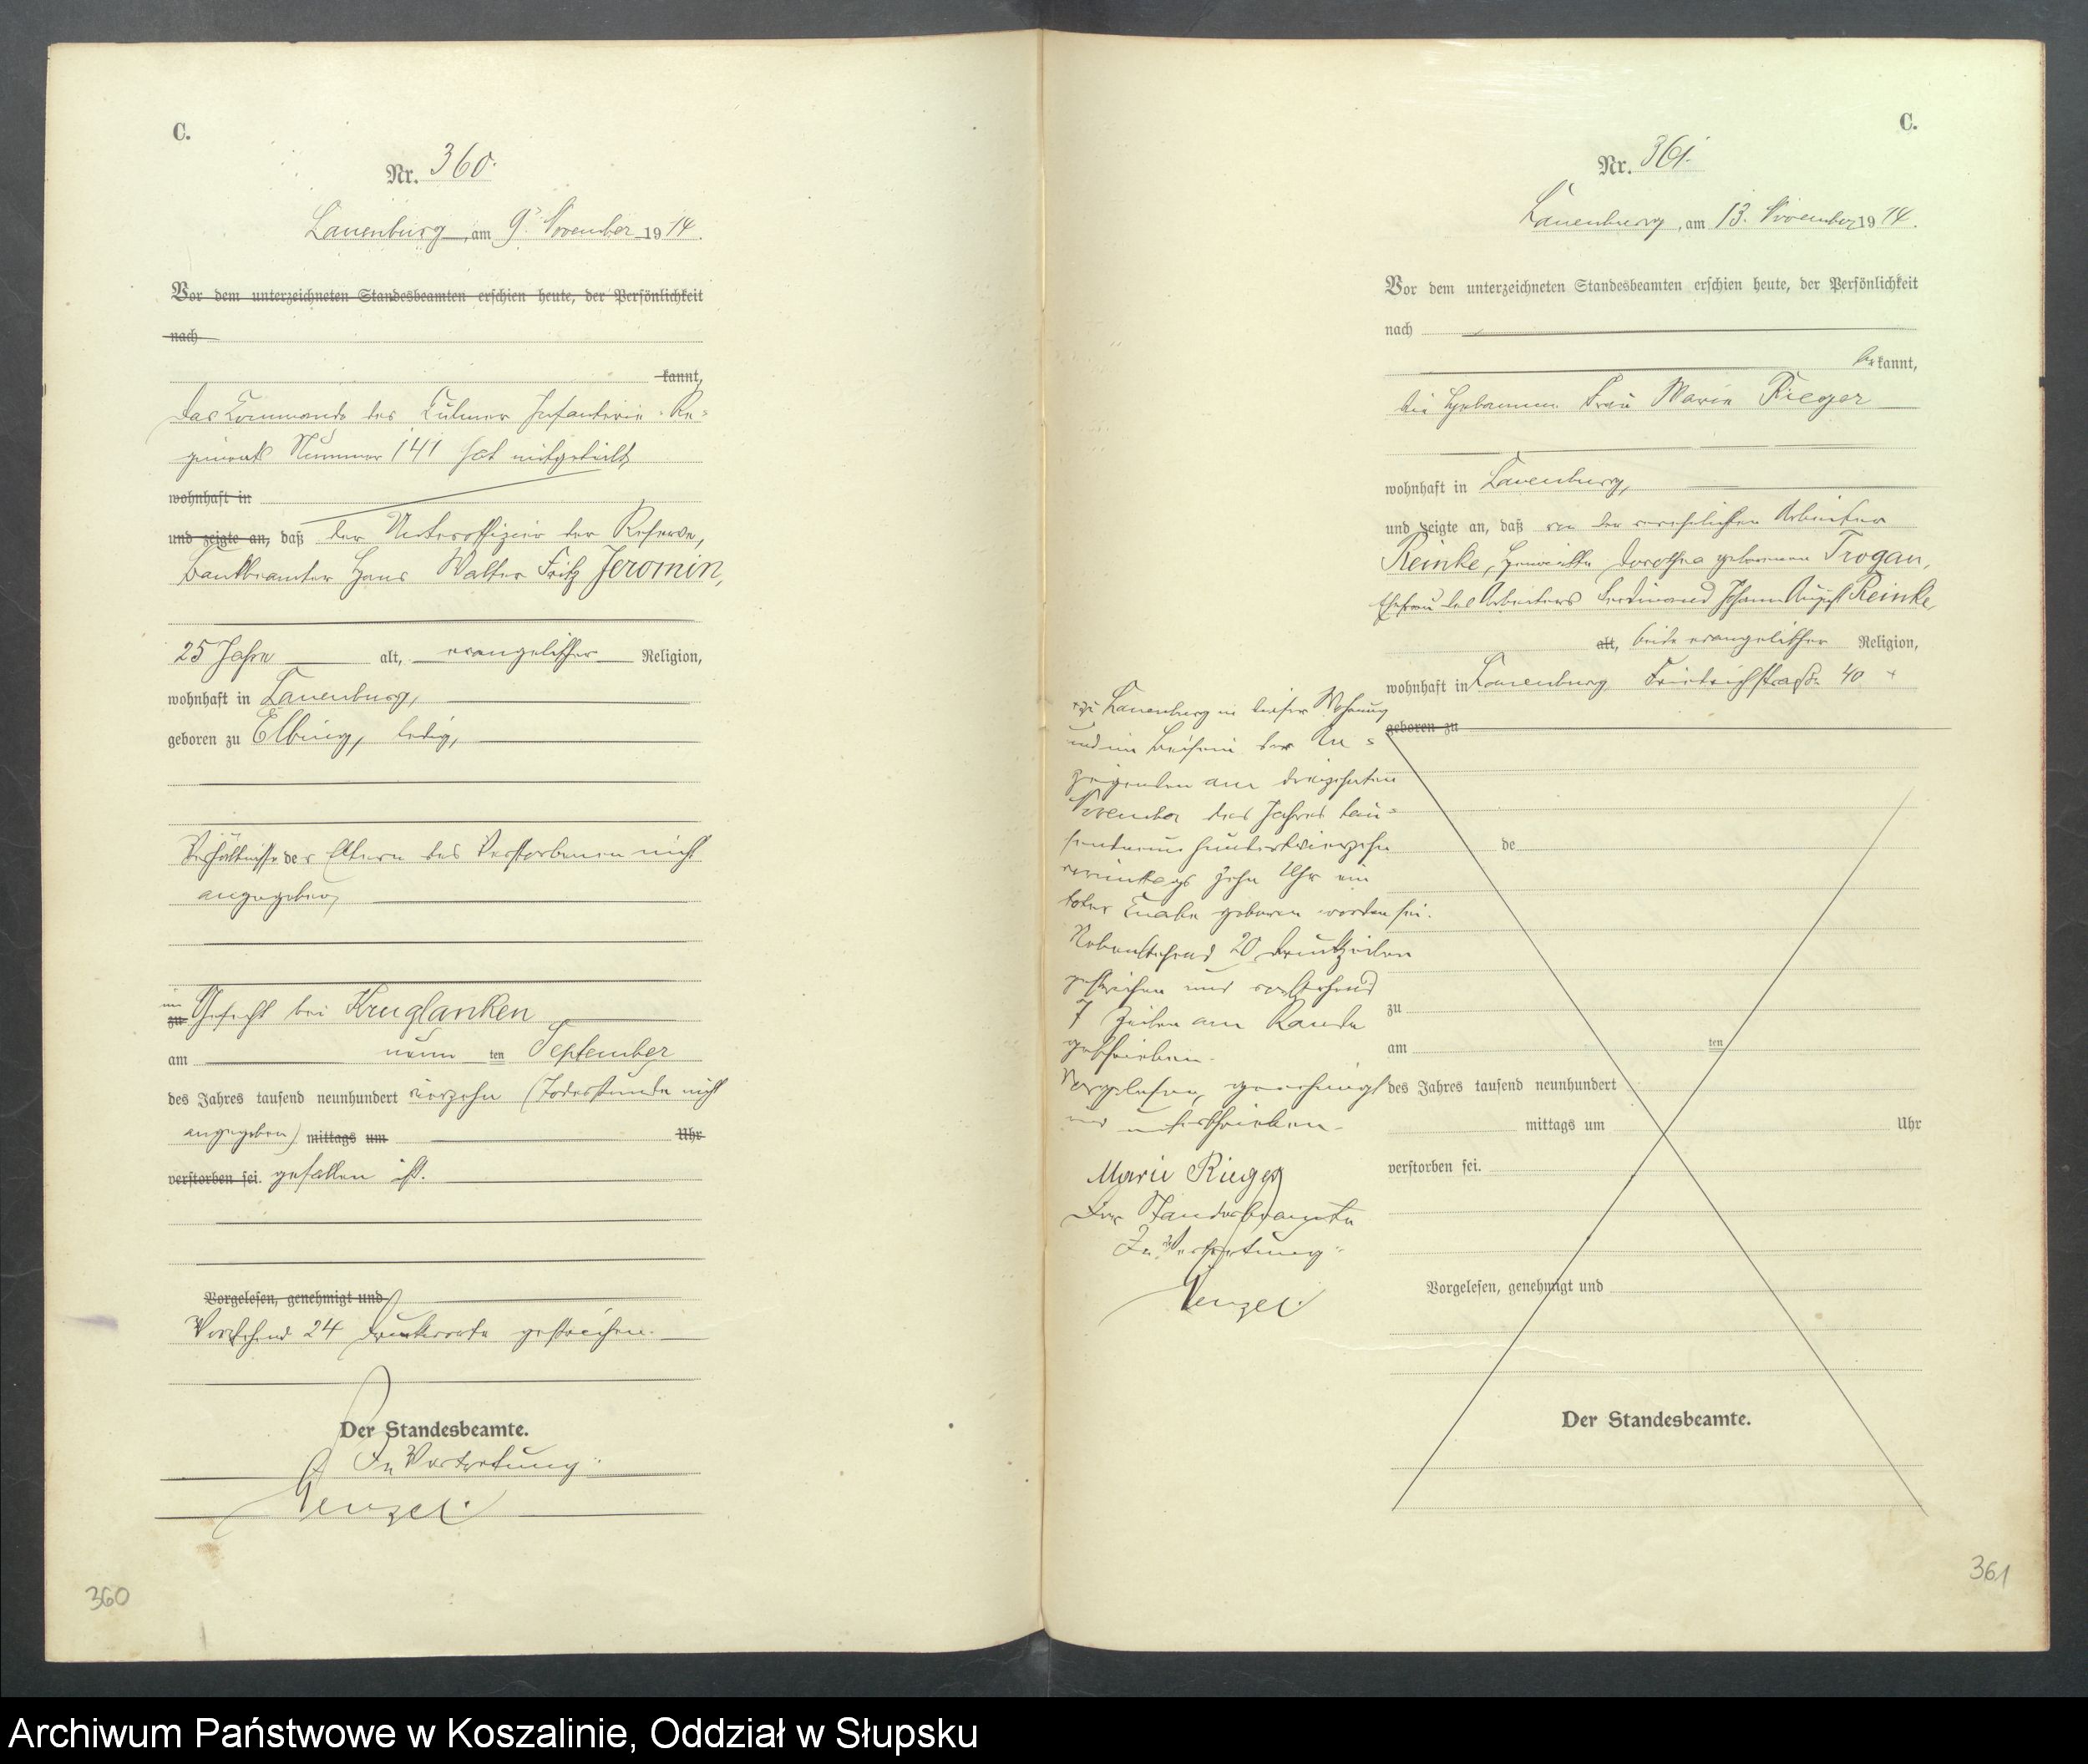 C.
Nr. 360.
Lauenburg, am 9. November 1914.
Vor dem unterzeichneten Standesbeamten erschien heute, der Persönlichkeit
nach
kannt,
das Commando des Culmer Infanterie-Re=
giments Nummer 141 hat mitgeteilt,
wohnhaft in
und zeigte an, daß der Unteroffizier der Reserve,
Bankbeamter Hans Walter Fritz Jeromin,
25 Jahre alt, evangelischer Religion,
wohnhaft in Lauenburg,
geboren zu Elbing, ledig,
Verhältnisse der Eltern des Verstorbenen nicht
angegeben,
im
zu Gefecht bei Kruglanken
am neun ten September
des Jahres tausend neunhundert vierzehn (Todesstunde nicht
angegeben) mittags um Uhr
verstorben sei. gefallen ist.
Vorgelesen, genehmigt und
Vorstehend 24 Druckworte gestrichen.
Der Standesbeamte.
In Vertretung:
Wenzel.
360
C.
Nr. 361.
Lauenburg, am 13. November 1914.
Vor dem unterzeichneten Standesbeamten erschien heute, der Persönlichkeit
nach
bekannt,
die Hebamme Frau Marie Rieger
wohnhaft in Lauenburg,
und zeigte an, daß von der verehelichten Arbeiter
Reinke, Henriette Dorothea geborenen Trogan,
Ehefrau des Arbeiters Ferdinand Johann August Reinke,
alt, beide evangelischer Religion,
wohnhaft in Lauenburg Friedrichstraße 40 +
geboren zu
de
zu
am ten
des Jahres tausend neunhundert
mittags um Uhr
verstorben sei.
Vorgelesen, genehmigt und
Der Standesbeamte.
+ zu Lauenburg in dieser Wohnung
und im Beisein der An=
zeigenden am dreizehnten
November des Jahres tau=
sendneunhundertvierzehn
vormittags zehn Uhr ein
toter Knabe geboren worden sei.
Nebenstehend 20 Druckzeilen
gestrichen und vorstehend
7 Zeilen am Rande
geschrieben.
Vorgelesen, genehmigt
und unterschrieben.
Marie Rieger
Der Standesbeamte
In Vertretung:
Wenzel.
361
Archiwum Państwowe w Koszalinie, Oddział w Słupsku